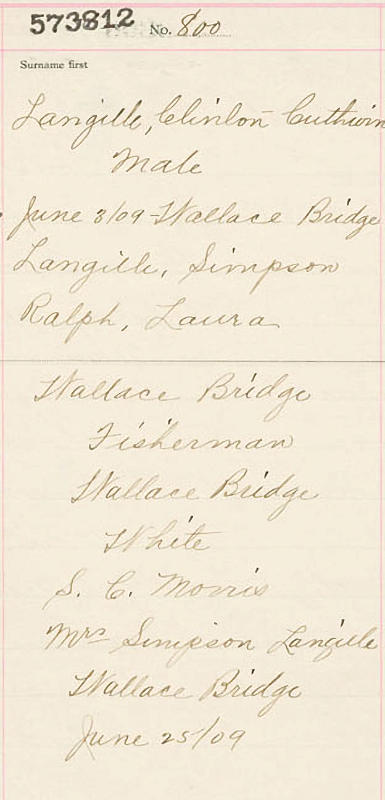 573812 No. 800
Surname first
Langille, Clinton Cuthwin
Male
June 3/09 - Wallace Bridge
Langille, Simpson
Ralph, Laura
Wallace Bridge
Fisherman
Wallace Bridge
White
S. C. Morris
Mrs Simpson Langille
Wallace Bridge
June 25/09